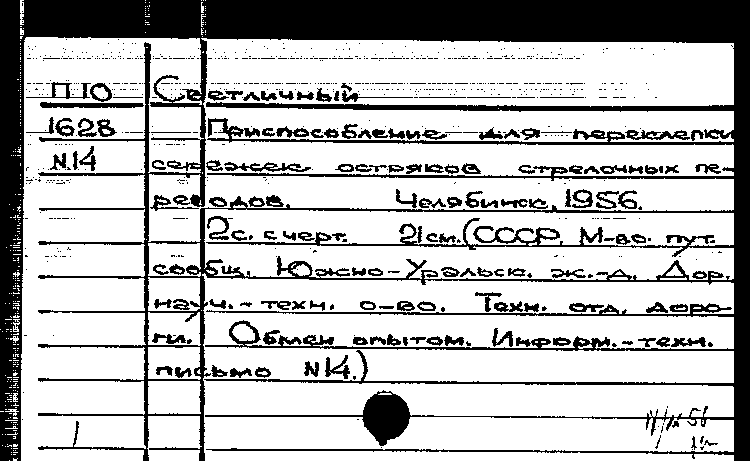 П10 Светличный
1628 Приспособление для переклепки
N14 сережек остряков стрелочных пе-
реводов. Челябинск, 1956.
2с. с черт. 21см. (СССР. М-во. пут.
сообщ. Южно-Уральск. ж.-д. Дор.
науч.-техн. о-во. Техн. отд. доро-
ги. Обмен опытом. Информ.-техн.
письмо N14.)
1 56